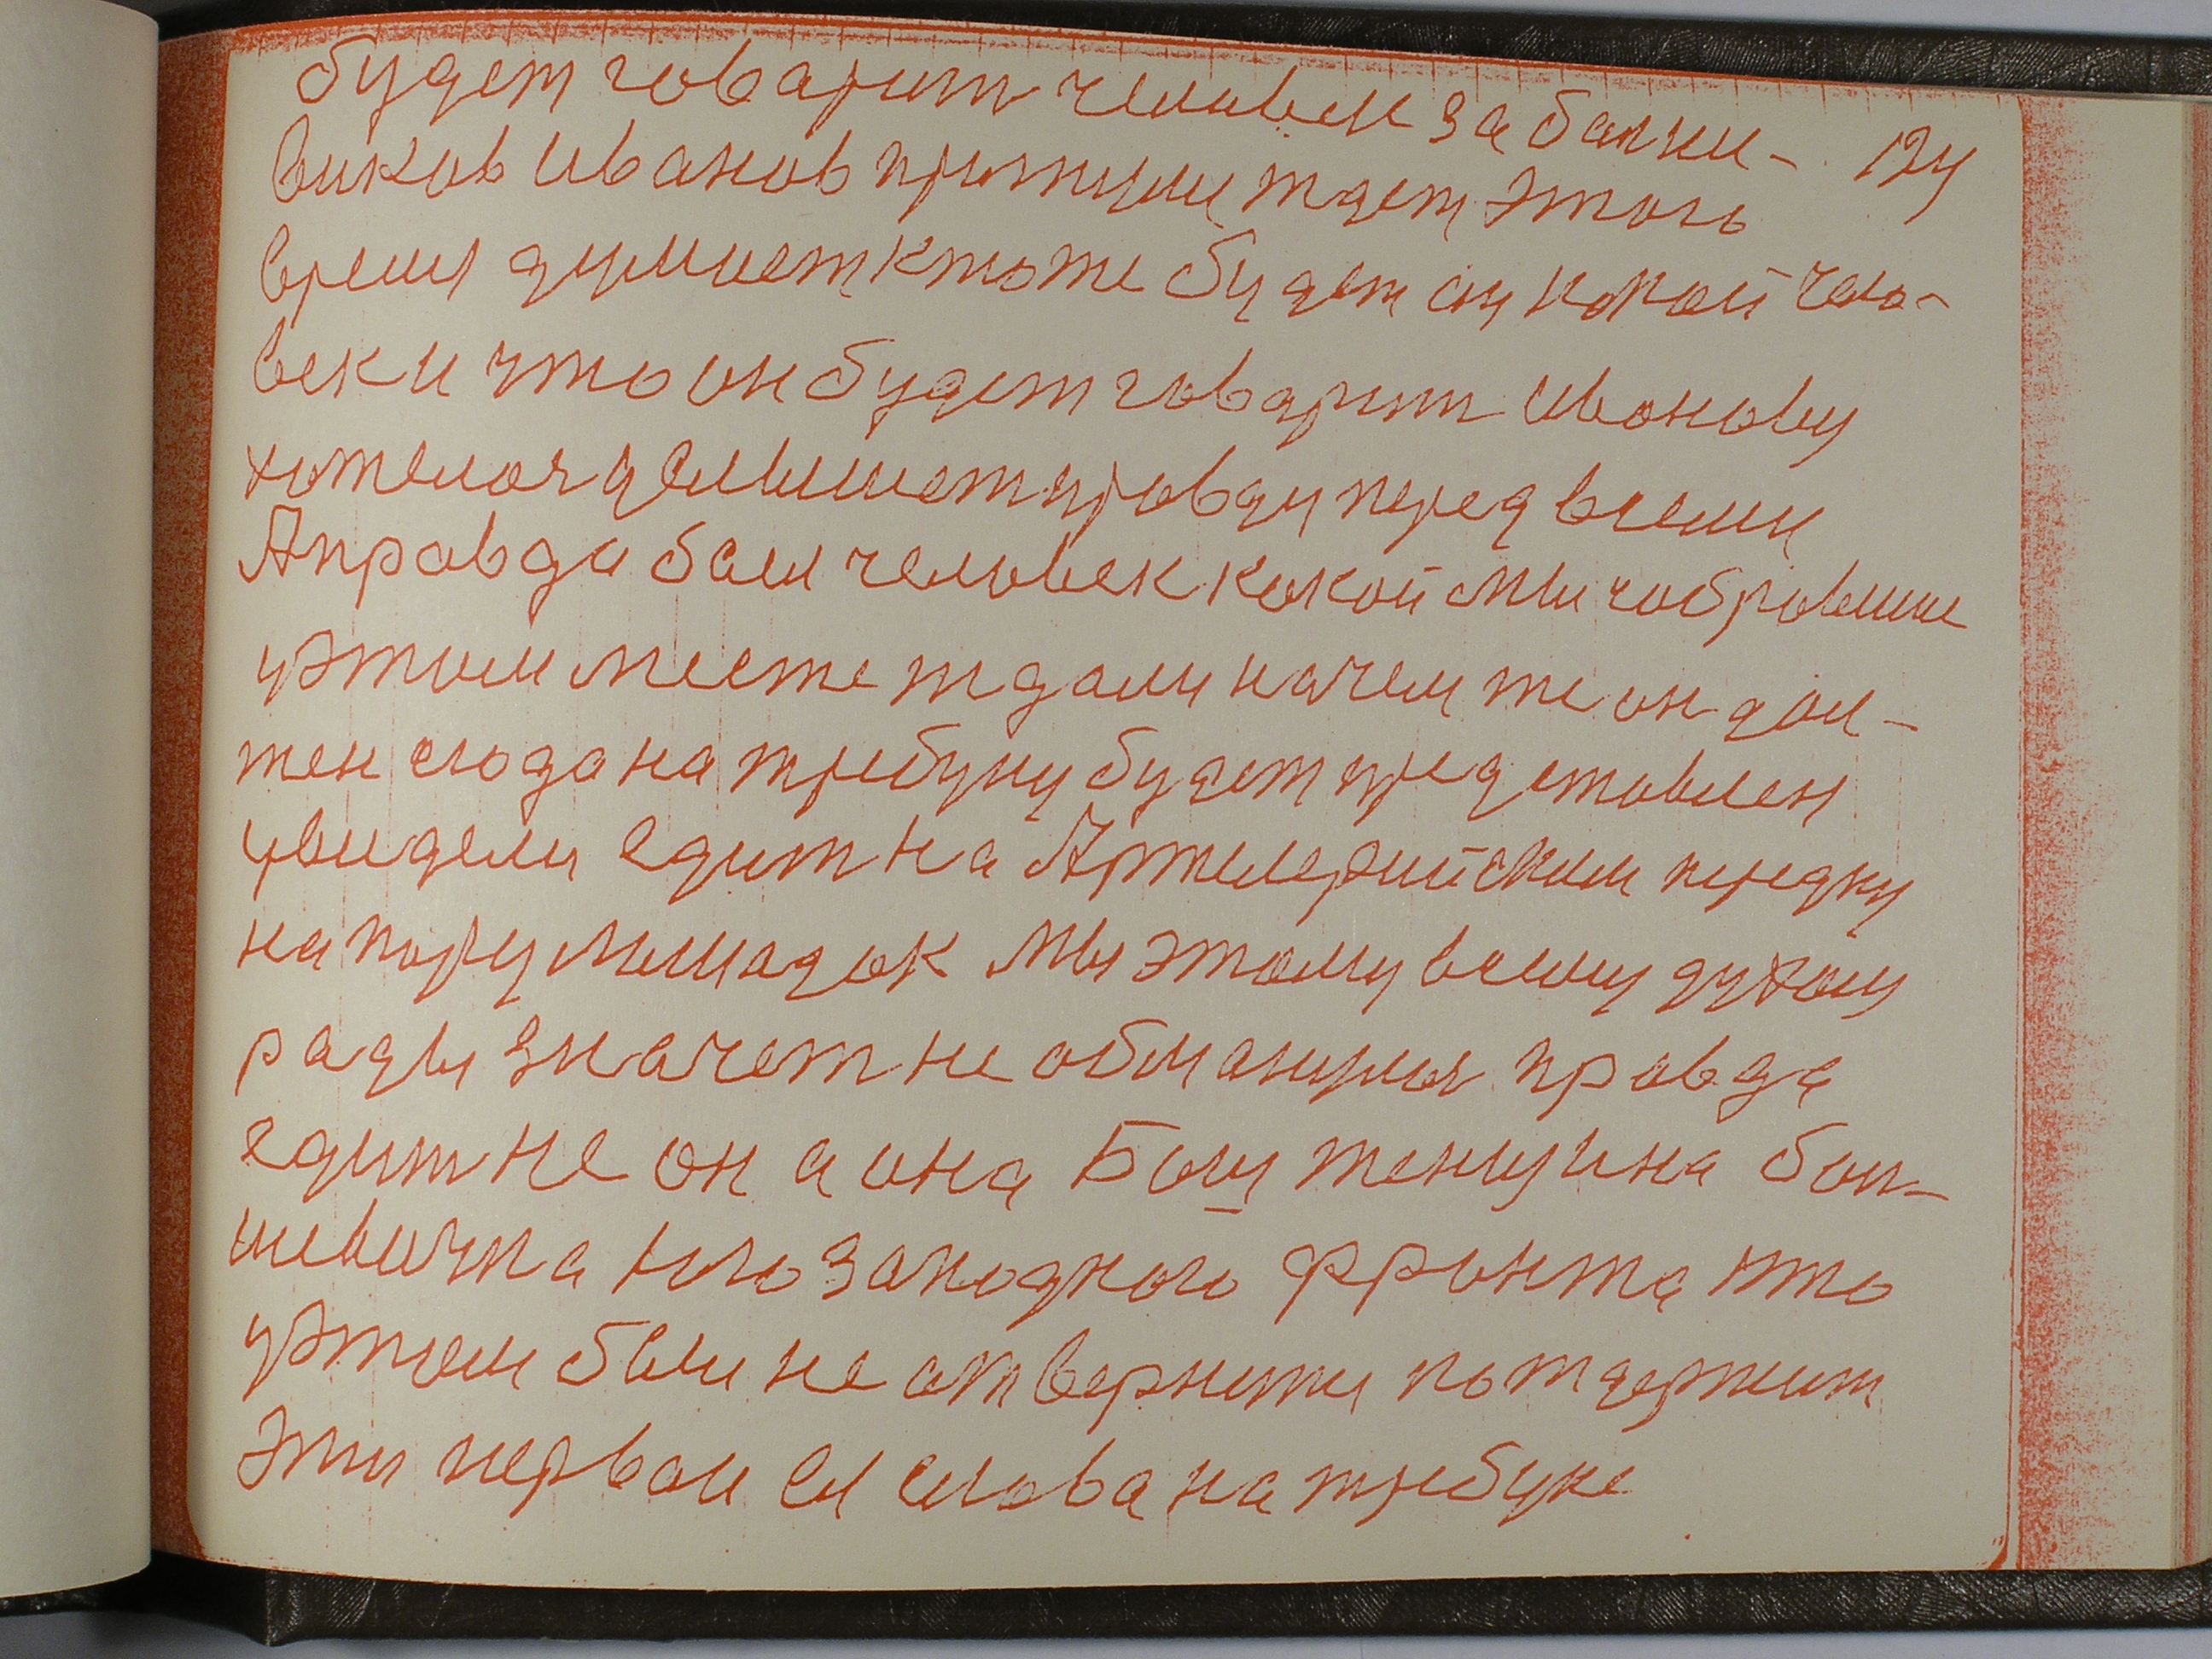 будет говарит человек за балши-
виков Иванов притули ждет этого
время думает ктоже будет он какой чело-
век и что он будет говарит Иванову
хотелося услышет правду перед всеми
А правда был человек какой мы собравшие
уэтом месте ждали начем же он дол-
жен сюда на трибуну будет представлен
увидели едит на Артилерийским передку
на пару лошадок мы этому всему духом
рады значет не обманулися правда
едит не он а она Бош женщина бол-
шевичка югозападного фронта кто
уэтом были не отвернити потдержит
эти первои ея слова на трибуне
124